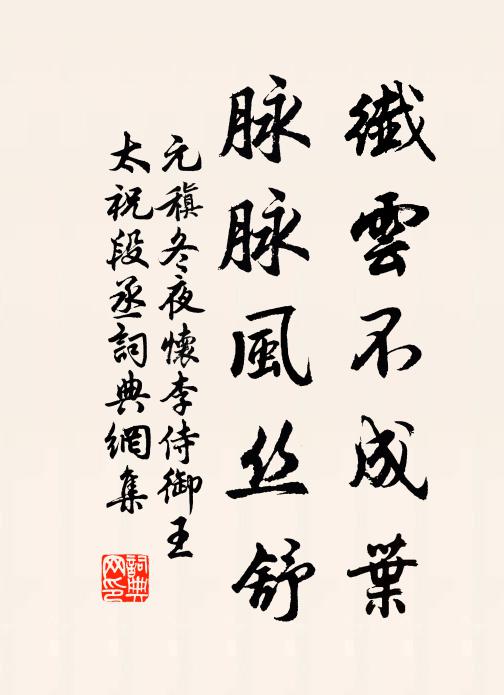 纖雲不成葉
脉脉風丝舒
元稹冬夜懷李侍御王
太祝段丞詞典網集
詞典网印